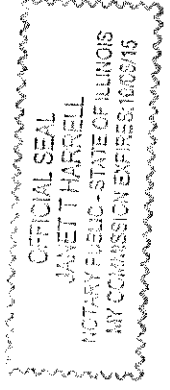 OFFICIAL SEAL
JANET T HARRELL
NOTARY PUBLIC - STATE OF ILLINOIS
MY COMMISSION EXPIRES:10/09/15